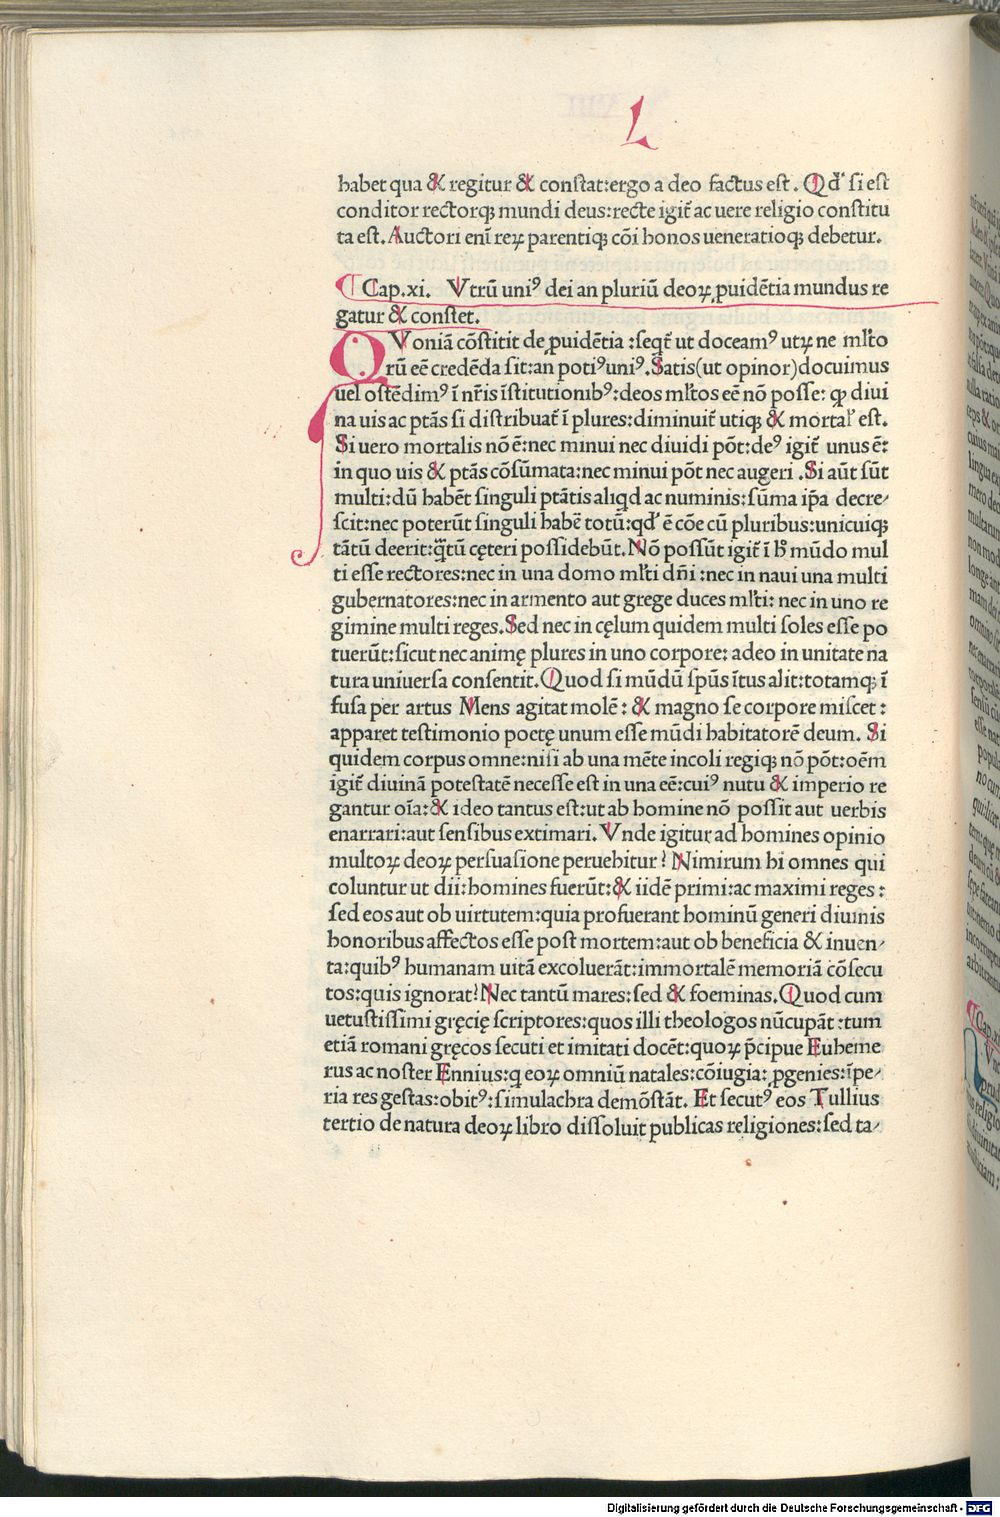 L
habet qua & regitur & constat:ergo a deo factus est. Qđ si est
conditor rectorq; mundi deus:recte igit̃ ac uere religio constitu
ta est. Auctori enī reꝝ parentiq; cōi honos ueneratioq; debetur.
¶ Cap.xi. Vtrū uniꝰ dei an pluriū deoꝝ ꝓuidētia mundus re
gatur & constet.
QVoniā cōstitit de ꝓuidētia :seqt̃ ut doceamꝰ utꝝ ne ml̃to
rū eē credēda sit:an potiꝰ uniꝰ. Satis(ut opinor)docuimus
uel ostēdimꝰ ī nr̃is īstitutionibꝰ:deos ml̃tos eē nō posse: ꝙ diui
na uis ac ptās si distribuat̃ ī plures:diminuit̃ utiq; & mortal̃ est.
Si uero mortalis nō ē:nec minui nec diuidi pōt:deꝰ igit̃ unus ē:
in quo uis & ptās cōsūmata:nec minui pōt nec augeri .Si aūt sūt
multi:dū habēt singuli ptātis aliqd ac numinis:sūma ip̄a decre-
scit:nec poterūt singuli habē totū:qđ ē cōe cū pluribus:unicuiq;
tātū deerit:q̃tū cęteri possidebūt. Nō possūt igit̃ ī h̃ mūdo mul
ti esse rectores:nec in una domo ml̃ti dn̄i :nec in naui una multi
gubernatores:nec in armento aut grege duces ml̃ti: nec in uno re
gimine multi reges. Sed nec in cęlum quidem multi soles esse po
tuerūt:sicut nec animę plures in uno corpore: adeo in unitate na
tura uniuersa consentit. Quod si mūdū sp̄us ītus alit:totamq; ī
fusa per artus Mens agitat molē: & magno se corpore miscet :
apparet testimonio poetę unum esse mūdi habitatorē deum. Si
quidem corpus omne:nisi ab una mēte incoli regiq; nō pōt:oēm
igit̃ diuinā potestatē necesse est in una eē:cuiꝰ nutu & imperio re
gantur oīa:& ideo tantus est:ut ab homine nō possit aut uerbis
enarrari:aut sensibus extimari. Vnde igitur ad homines opinio
multoꝝ deoꝝ persuasione peruehitur? Nimirum hi omnes qui
coluntur ut dii:homines fuerūt:& iidē primi:ac maximi reges :
sed eos aut ob uirtutem:quia profuerant hominū generi diuinis
honoribus affectos esse post mortem:aut ob beneficia & inuen-
ta:quibꝰ humanam uitā excoluerāt:immortalē memoriā cōsecu
tos:quis ignorat? Nec tantū mares:sed & foeminas. Quod cum
uetustissimi gręcię scriptores:quos illi theologos nūcupāt :tum
etiā romani gręcos secuti et imitati docēt:quoꝝ p̄cipue Euheme
rus ac noster Ennius:q eoꝝ omniū natales:cōiugia: ꝓgenies:īpe-
ria res gestas:obitꝰ:simulachra demōstāt. Et secutꝰ eos Tullius
tertio de natura deoꝝ libro dissoluit publicas religiones:sed ta-
Digitalisierung gefördert durch die Deutsche Forschungsgemeinschaft - DFG